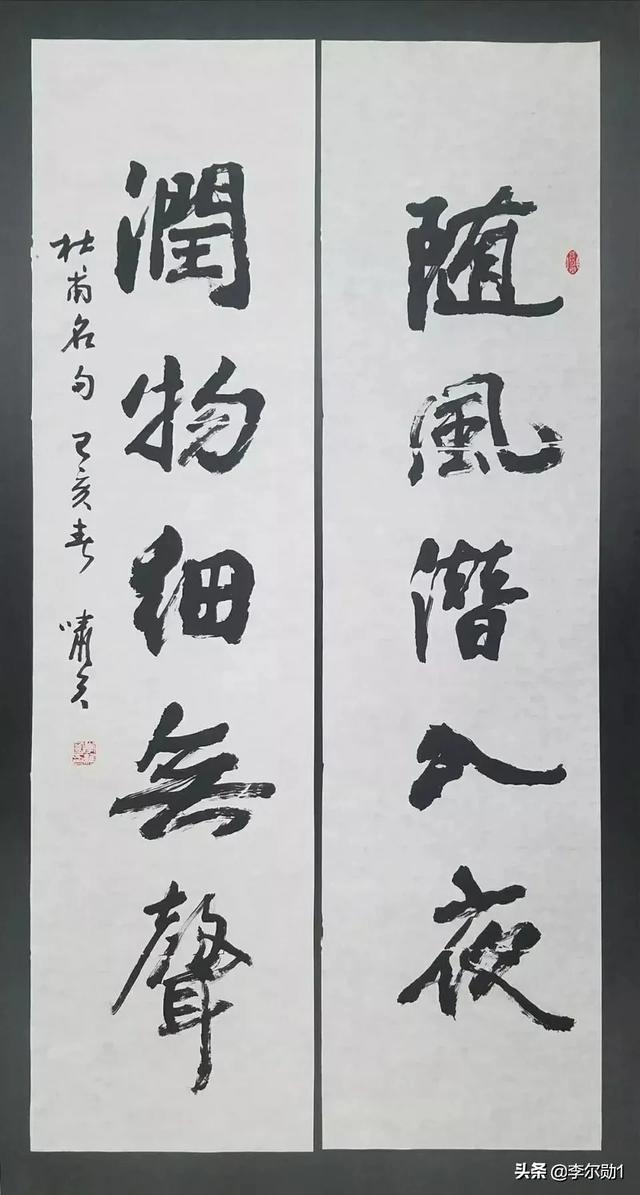 随風潛入夜
潤物細無聲
杜甫名句 己亥春 嘯天
头条 @李尔勋1